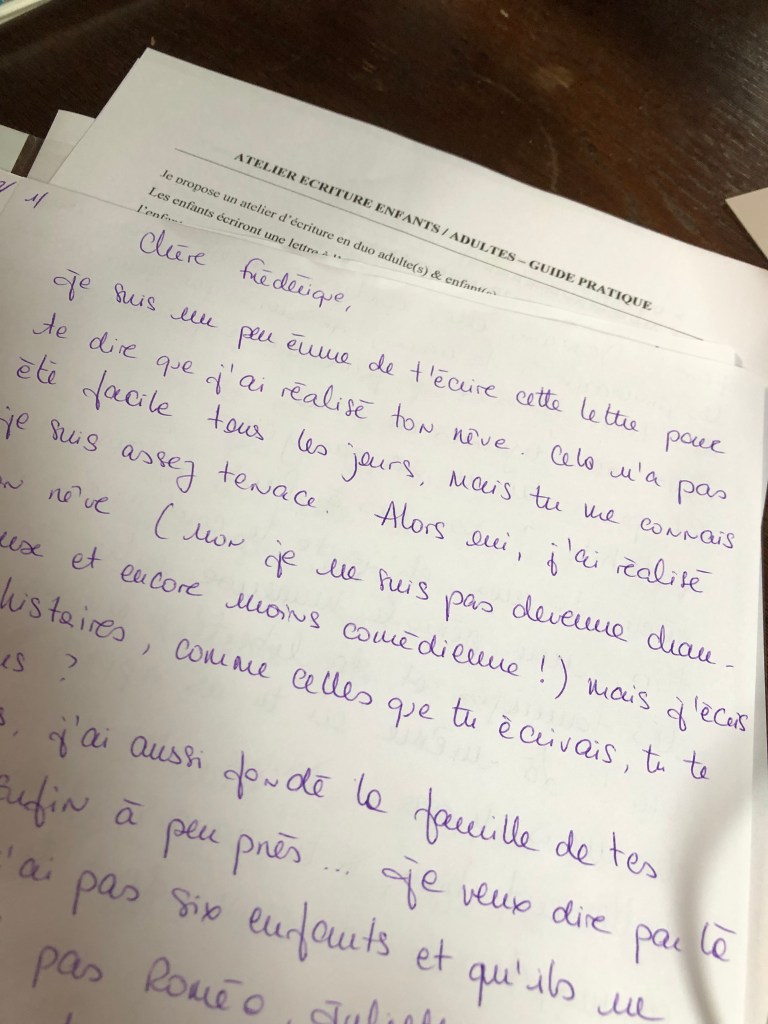 ATELIER ECRITURE ENFANTS / ADULTES – GUIDE PRATIQUE
Je propose un atelier d'écriture en duo adulte(s) & enfant(s)
Les enfants écriront une lettre à
Chère Frédérique,
Je suis un peu émue de t'écrire cette lettre pour
te dire que j'ai réalisé ton rêve. Cela n'a pas
été facile tous les jours, mais tu me connais
je suis assez tenace. Alors oui, j'ai réalisé
rêve (non je ne suis pas devenue chan-
et encore moins comédienne !) mais j'écris
histoires, comme celles que tu écrivais, tu te
?
j'ai aussi fondé la famille de tes
Enfin à peu près... Je veux dire par là
'ai pas six enfants et qu'ils ne
pas Roméo,